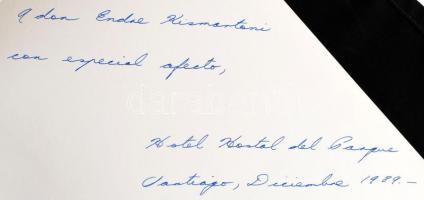 A don Endre Kismartoni
con especial afecto,
darabanth
Hotel Hostal del Parque
Santiago, Diciembre 1989.-